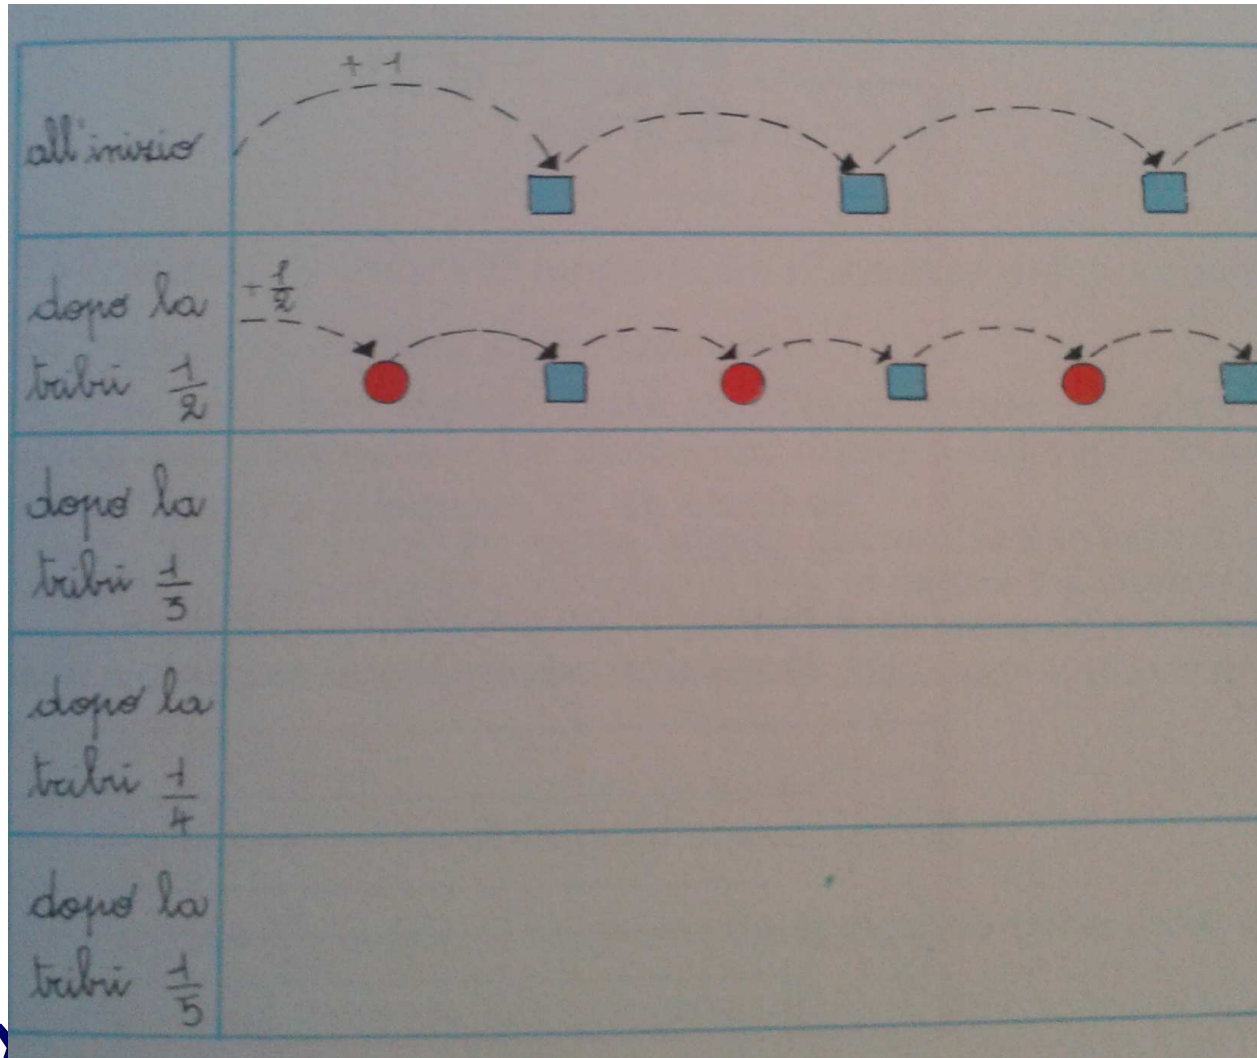 all'inizio
+ 1
dopo la
tribù 1/2
+ 1/2
dopo la
tribù 1/3
dopo la
tribù 1/4
dopo la
tribù 1/5